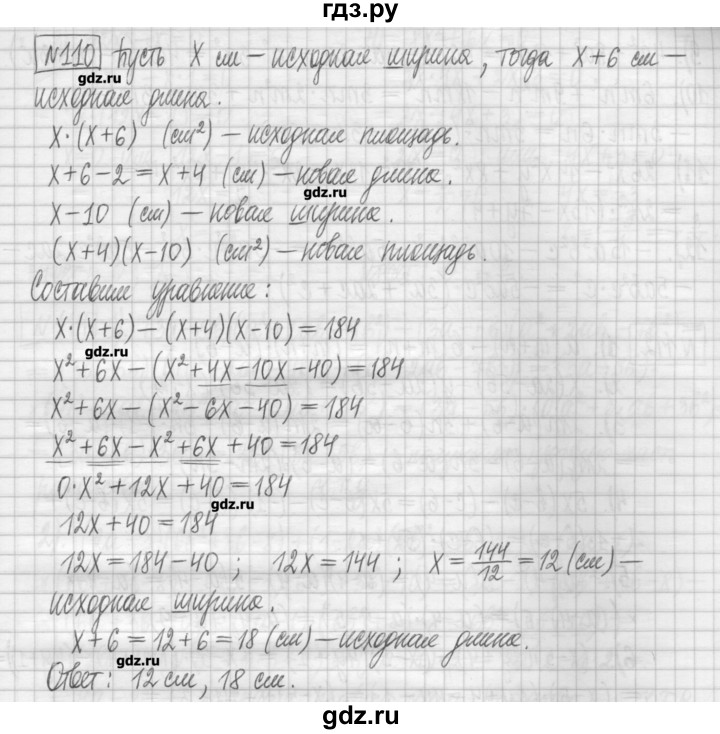 гдз.ру
№110 Пусть x см – исходная ширина, тогда x+6 см –
gdz.ru
исходная длина.
x·(x+6) (см²) – исходная площадь.
x+6−2=x+4 (см) – новая длина.
gdz.ru
x−10 (см) – новая ширина.
(x+4)(x−10) (см²) – новая площадь.
Составим уравнение:
x·(x+6)−(x+4)(x−10)=184
gdz.ru
x²+6x−(x²+4x−10x−40)=184
x²+6x−(x²−6x−40)=184
x²+6x−x²+6x+40=184
0·x²+12x+40=184
gdz.ru
12x+40=184
12x=184−40 ; 12x=144 ; x=144/12=12 (см) –
исходная ширина.
x+6=12+6=18 (см) – исходная длина.
gdz.ru
Ответ: 12 см, 18 см.
gdz.ru